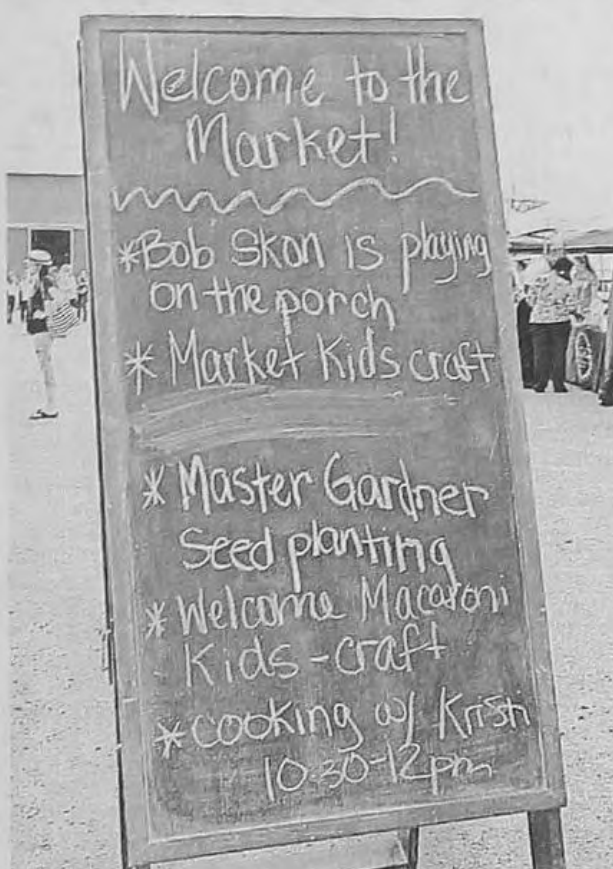 Welcome to the
Market!
*Bob Skon is playing
on the porch
* Market Kids craft
* Master Gardner
Seed planting
* Welcome Macaroni
Kids - craft
* cooking w/ Kristi
10:30-12pm